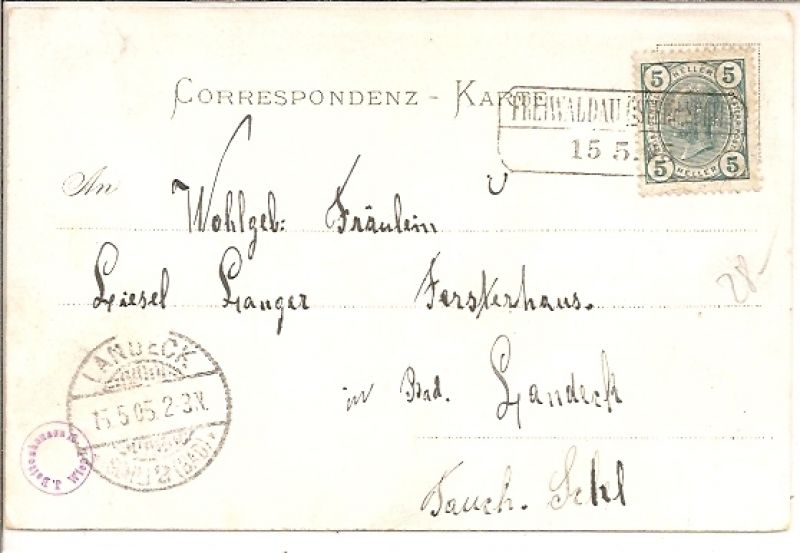 CORRESPONDENZ - KARTE
FREIWALDAU
15 5.
5 HELLER 5
5 HELLER 5
An
Wohlgeb: Fräulein
Liesel Langer Forsterhaus.
in Bad. Landeck
LANDECK
15.5.05.2-3N.
28-